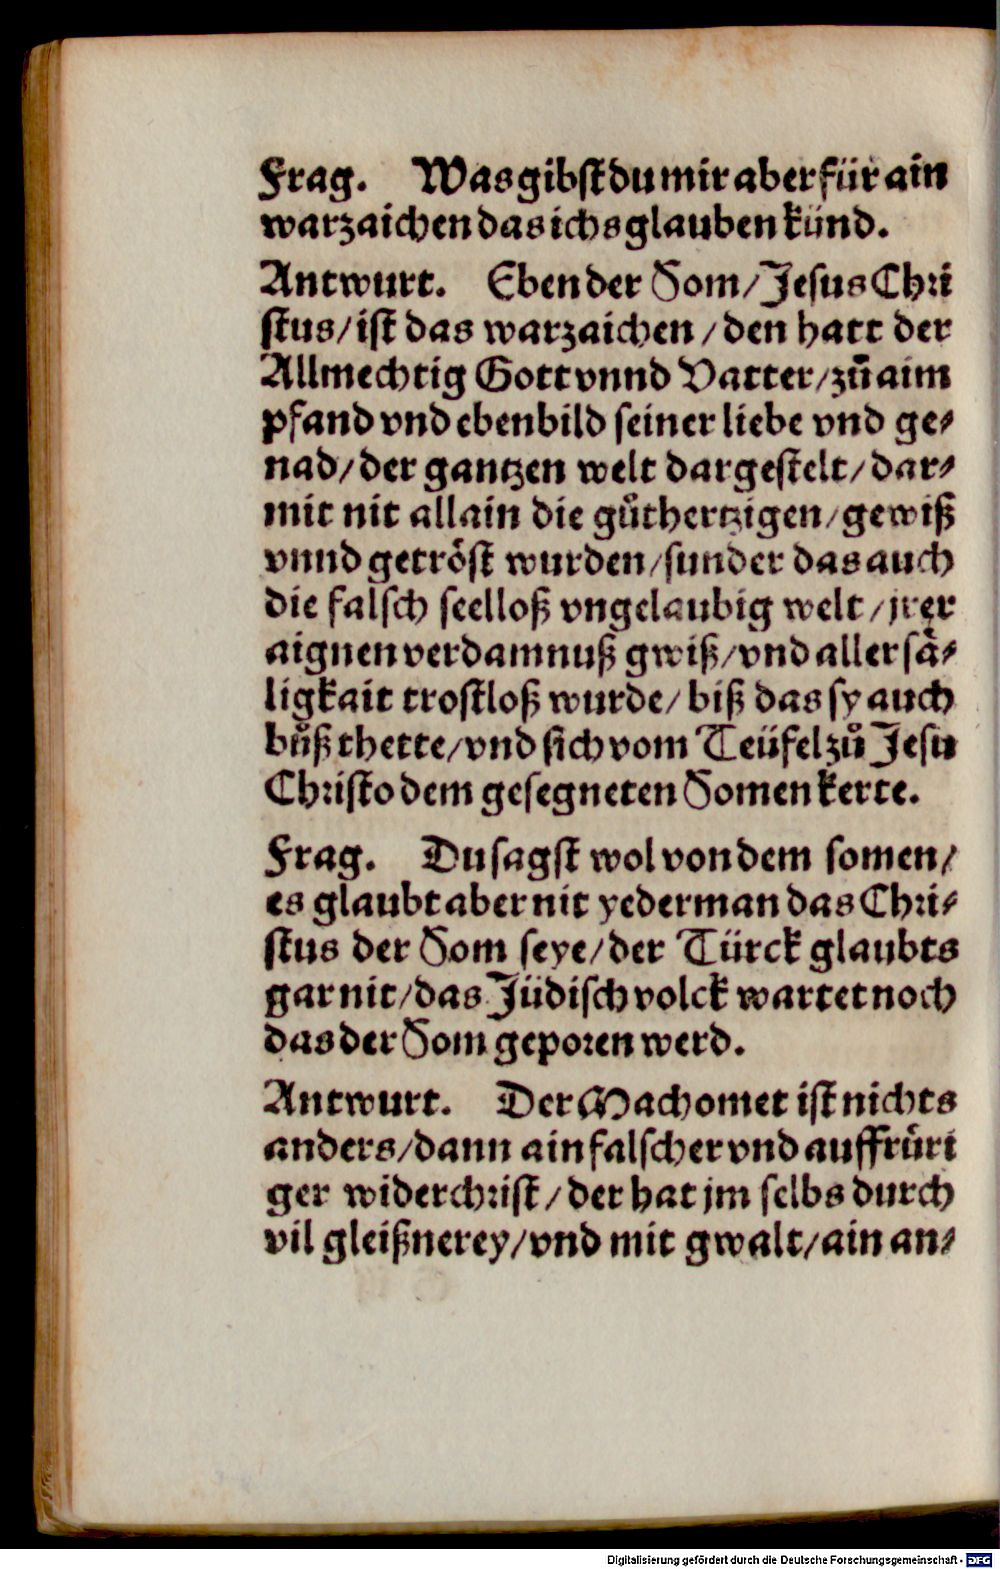 Frag. Was gibst du mir aber für ain
warzaichen das ichs glauben künd.
Antwurt. Eben der Som/ Jesus Chri
stus/ ist das warzaichen / den hatt der
Allmechtig Gott vnnd Vatter/ zů aim
pfand vnd ebenbild seiner liebe vnd ge⸗
nad/ der gantzen welt dargestelt/ dar⸗
mit nit allain die gůthertzigen/ gewiß
vnnd getröst wurden/ sunder das auch
die falsch seelloß vngelaubig welt / jrer
aignen verdamnuß gwiß/ vnd aller sä⸗
ligkait trostloß wurde/ biß das sy auch
bůß thette/ vnd sich vom Teüfel zů Jesu
Christo dem gesegneten Somen kerte.
Frag. Du sagst wol von dem somen/
es glaubt aber nit yederman das Chri⸗
stus der Som seye/ der Türck glaubts
gar nit/ das Jüdisch volck wartet noch
das der Som geporen werd.
Antwurt. Der Machomet ist nichts
anders/ dann ain falscher vnd auffrüri
ger widerchrist / der hat jm selbs durch
vil gleißnerey/ vnd mit gwalt/ ain an⸗
Digitalisierung gefördert durch die Deutsche Forschungsgemeinschaft - DFG